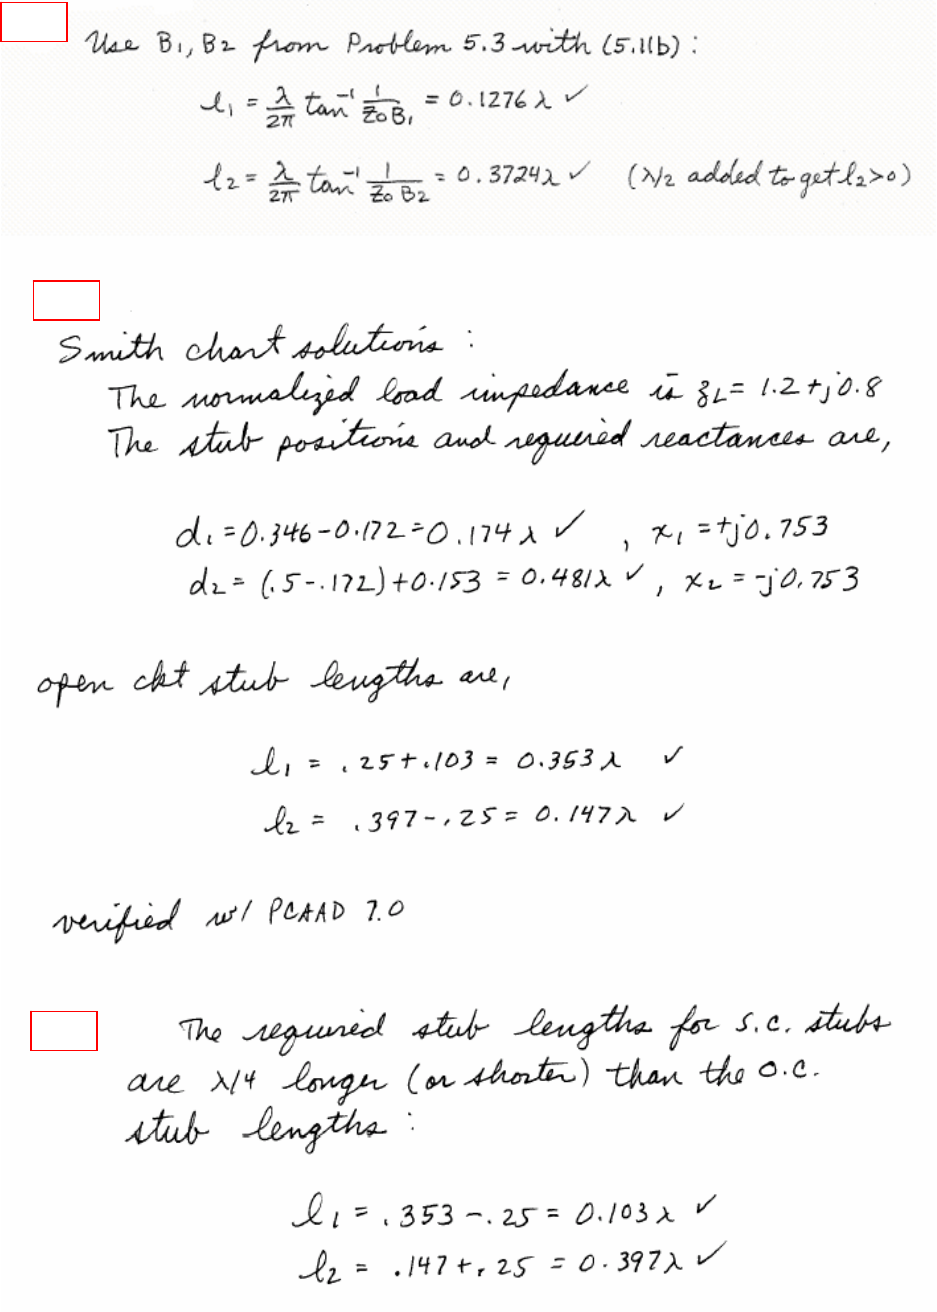 Use B1, B2 from Problem 5.3 with (5.11b) :
l1 = λ/2π tan⁻¹ 1/Z0B1 = 0.1276 λ ✓
l2 = λ/2π tan⁻¹ 1/Z0 B2 = 0.3724λ ✓ (λ/2 added to get l2>0)
Smith chart solutions :
The normalized load impedance is zL = 1.2 + j0.8
The stub positions and required reactances are,
d1 = 0.346 - 0.172 = 0.174 λ ✓ , x1 = +j0.753
d2 = (.5 - .172) + 0.153 = 0.481λ ✓ , x2 = -j0.753
open ckt stub lengths are,
l1 = .25 + .103 = 0.353 λ ✓
l2 = .397 - .25 = 0.147λ ✓
verified w/ PCAAD 7.0
The required stub lengths for s.c. stubs
are λ/4 longer (or shorter) than the o.c.
stub lengths :
l1 = .353 - .25 = 0.103 λ ✓
l2 = .147 + .25 = 0.397λ ✓